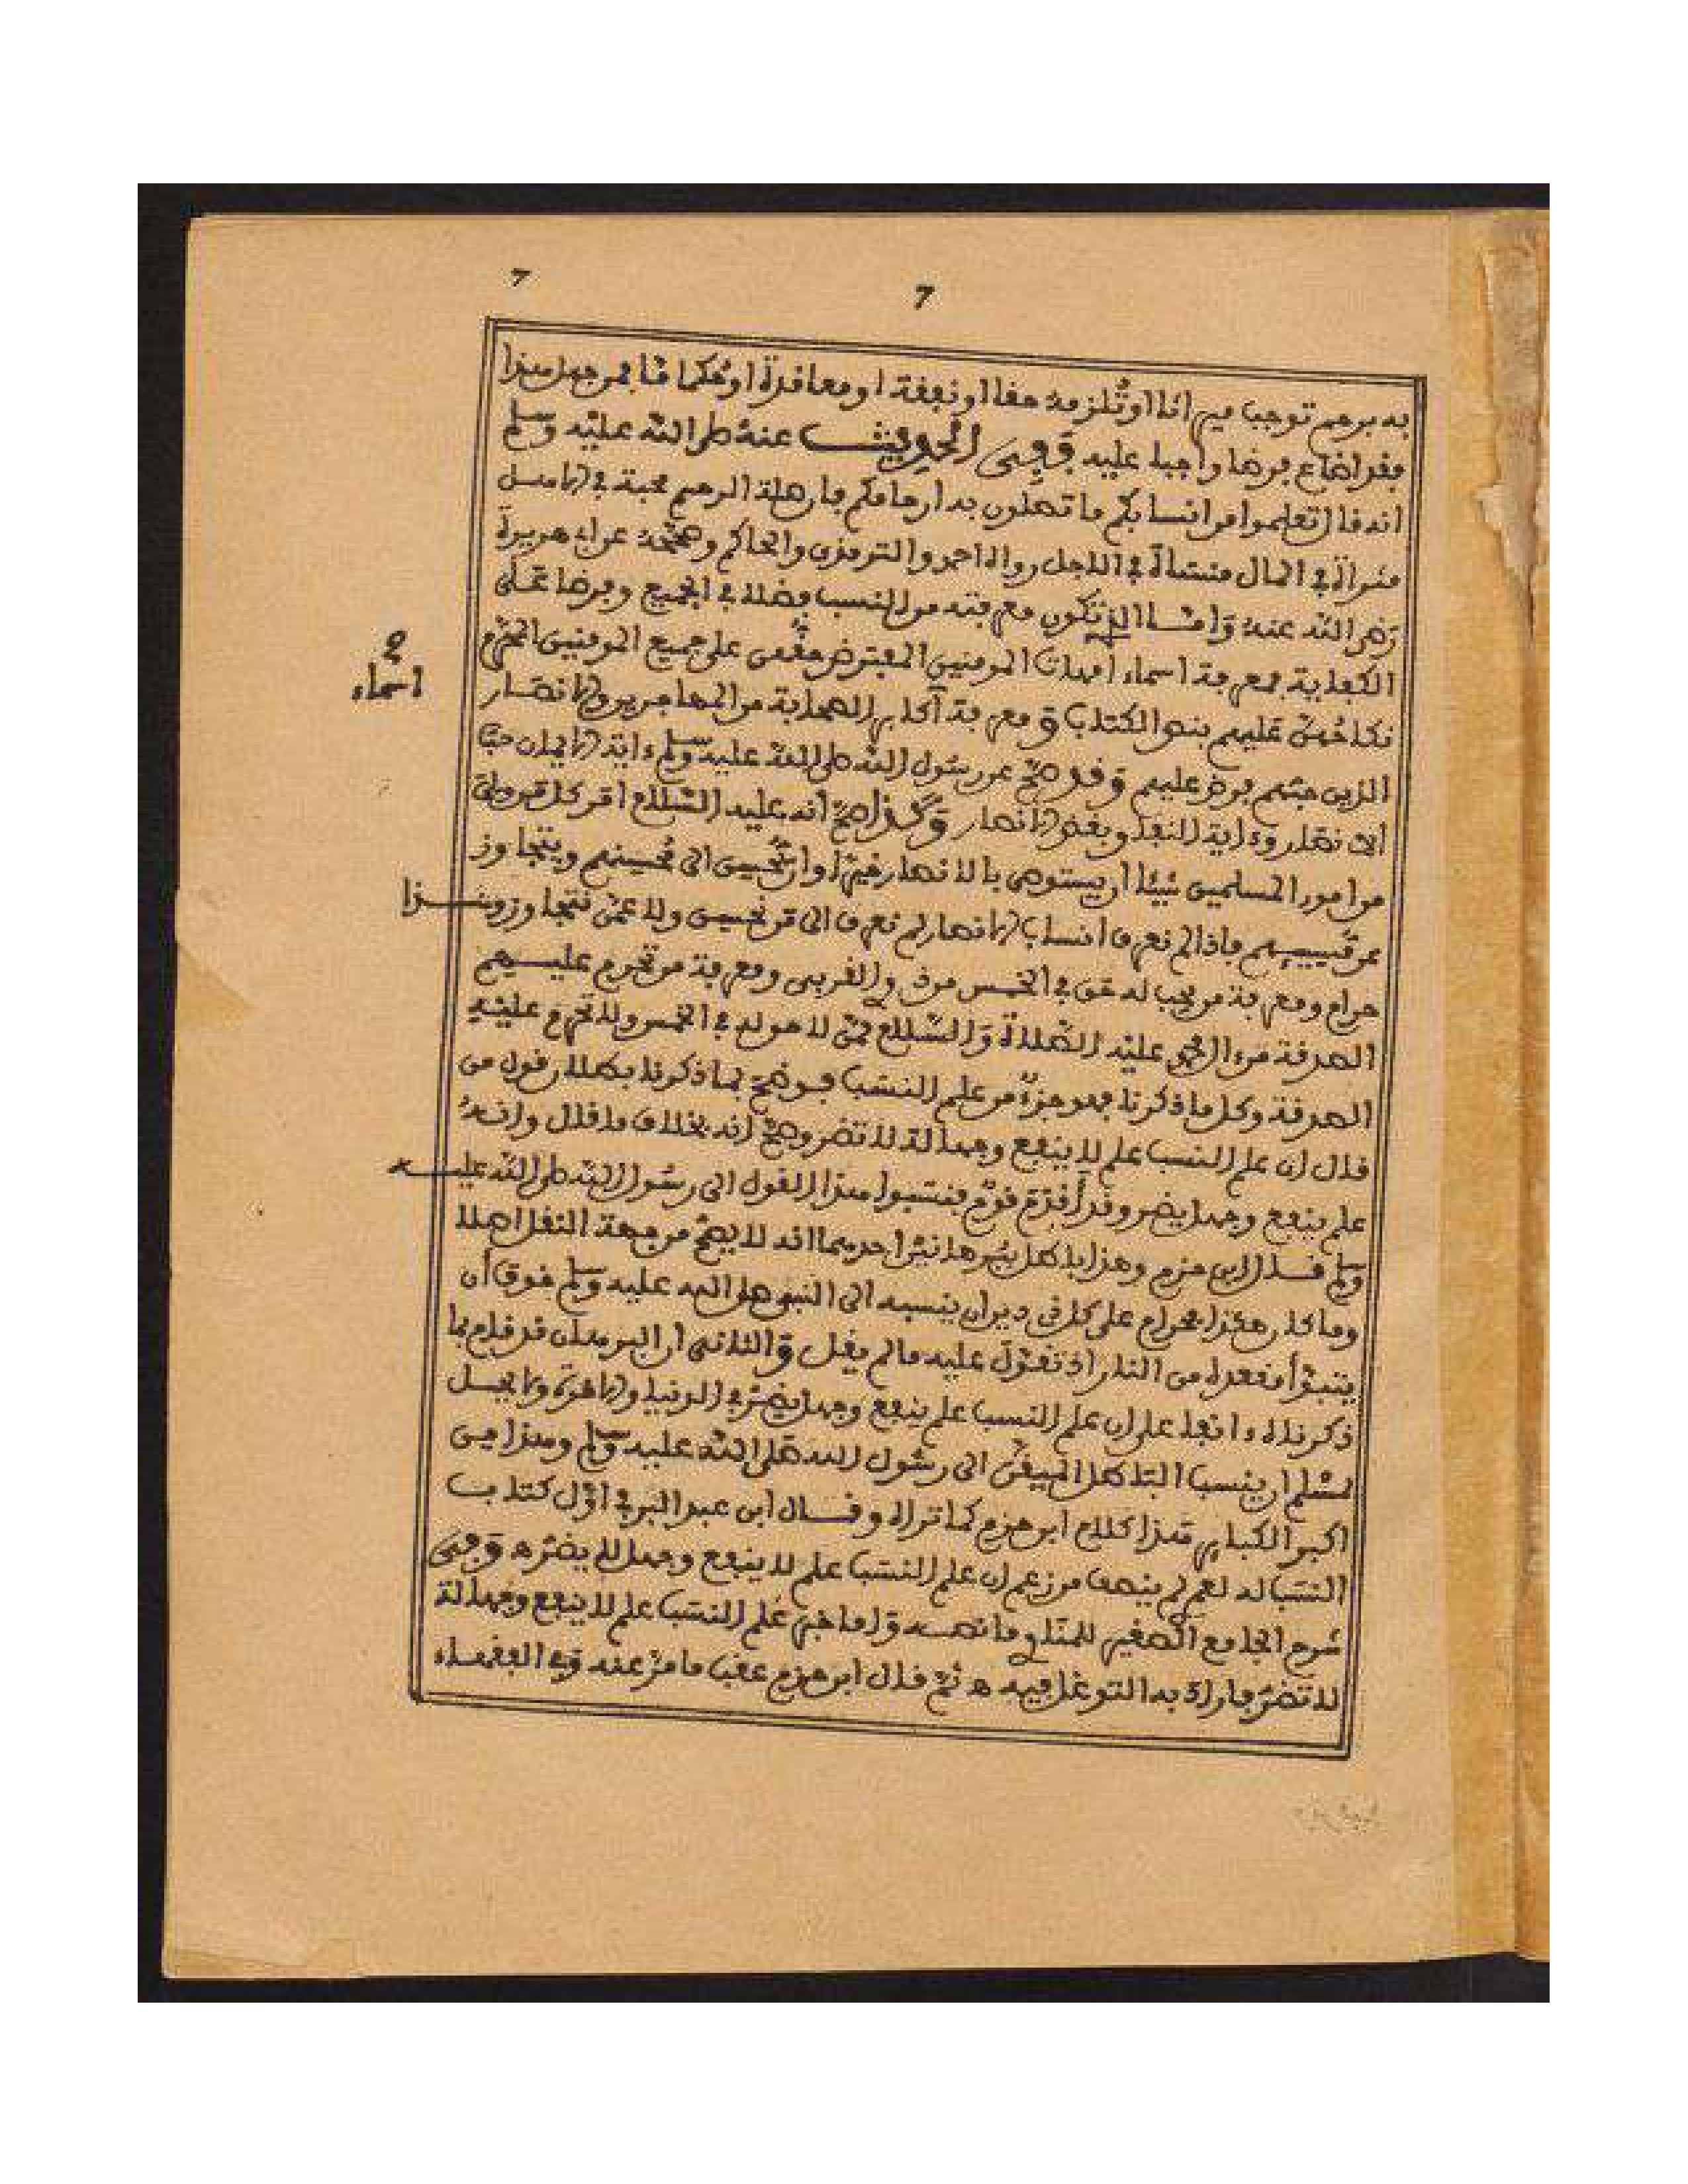 7
7
به برحم توجب ميراثا او تلزمه حقا او نفقة او معاقدة او حكما ما فمن جهل هذا
فقد اضاع فرضا واجبا عليه وفى الحديث عنه صلى الله عليه وسلم
انه قال تعلموا من انسابكم ما تصلون به ارحامكم فان صلة الرحم محبة في الاهل
مثراة في المال منسأة في الاجل رواه احمد والترمذى والحاكم وصححه عن ابى هريرة
رضى الله عنه واما الذى تكون معرفته من النسب فضلا في الجميع وفرضا على
الكفاية فمعرفة اسماء امهات المومنين المفترض حقهن على جميع المومنين المحرم
اسماء
نكاحهن عليهم بنص الكتاب ومعرفة اكابر الصحابة من المهاجرين والانصار
الذين حبهم فرض عليهم وقد صح عن رسول الله صلى الله عليه وسلم ءاية الايمان حب
الانصار وءاية النفاق وبغض الانصار وكذا صح انه عليه السلام امر كل من ولى
من امور المسلمين شيئا ان يستوصى بالانصار خيرا وان يحسن الى محسنهم ويتجاوز
عن مسيئهم فاذا لم نعرف انساب الانصار لم نعرف الى من نحسن ولا عمن نتجاوز وهذا
حرام ومعرفة من يجب له حق في الخمس من ذوى القربى ومعرفة من تحرم عليهم
الصدقة من ءال محمد عليه الصلاة والسلام ممن لا حق له في الخمس ولا تحرم عليه
الصدقة وكل ما ذكرنا فهو جزء من علم النسب فوضح بما ذكرنا بطلان قول من
قال ان علم النسب علم لا ينفع وجهالة لا تضر وصح انه بخلاف ما قال وانه
علم ينفع وجهل يضر وقد اقدم قوم فنسبوا هذا القول الى رسول الله صلى الله عليه
وسلم قال ابن حزم وهذا باطل ببرهانين احدهما انه لا يصح من جهة النقل اصلا
وما كان هكذا فحرام على كل ذى دين ان ينسبه الى النبى صلى الله عليه وسلم خوف أن
يتبوأ مقعده من النار اذ تقول عليه ما لم يقل والثانى ان البرهان قد قام بما
ذكرناه ءانفا على ان علم النسب علم ينفع وجهل يضر في الدنيا والاخرة ولا يحل
لمسلم ان ينسب الباطل المتيقن الى رسول الله صلى الله عليه وسلم وهذا من
اكبر الكبائر هذا كلام ابن حزم كما تراه وقال ابن عبد البر في اول كتاب
النسب له لعمرى لم ينصف من زعم ان علم النسب علم لا ينفع وجهل لا يضر ه وفى
شرح الجامع الصغير للمناوى ما نصه واما خبر علم النسب علم لا ينفع وجهالة
لا تضر فاراد به التوغل فيه ه ثم قال ابن حزم عقب ما مر عنه وفى الفقهاء